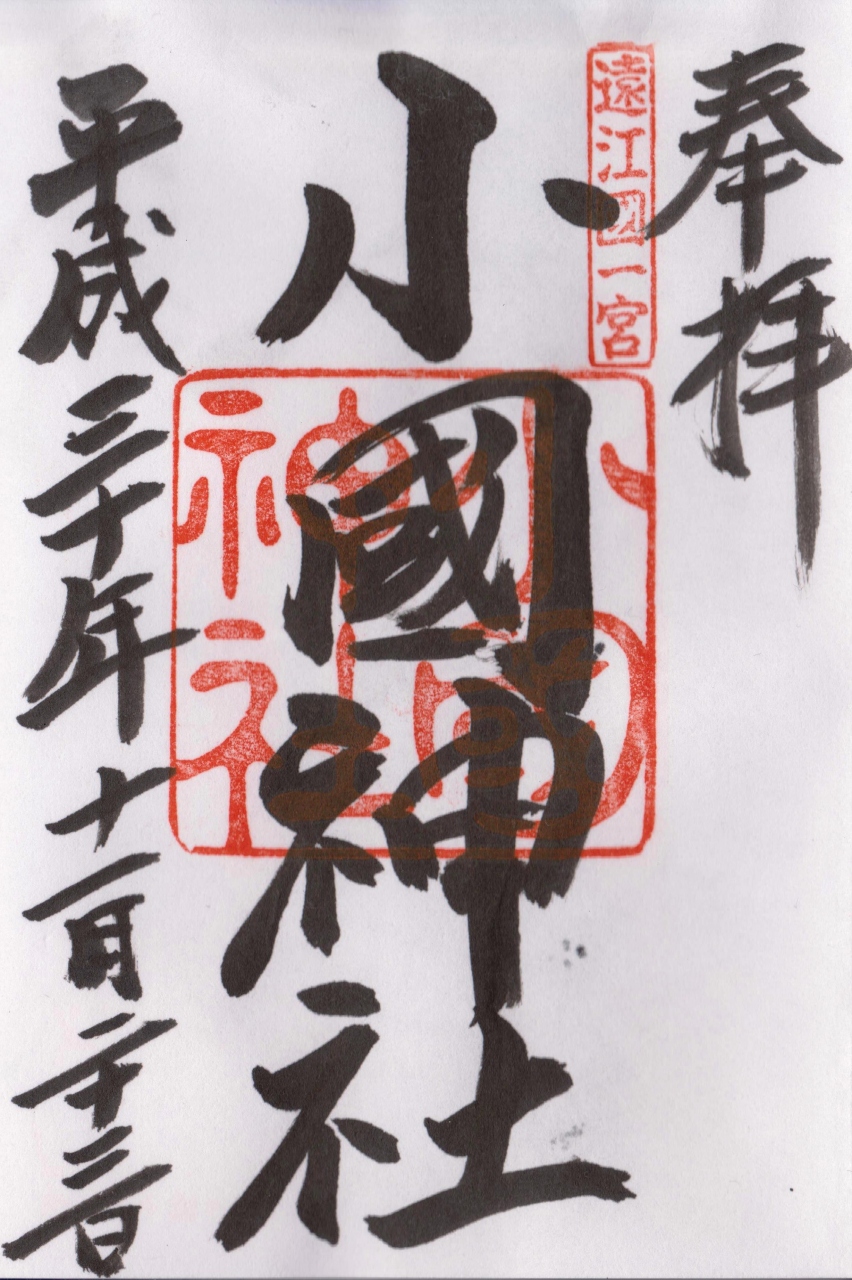 奉拝
遠江國一宮
小國神社
小國神社
平成三十年十一月二十三日